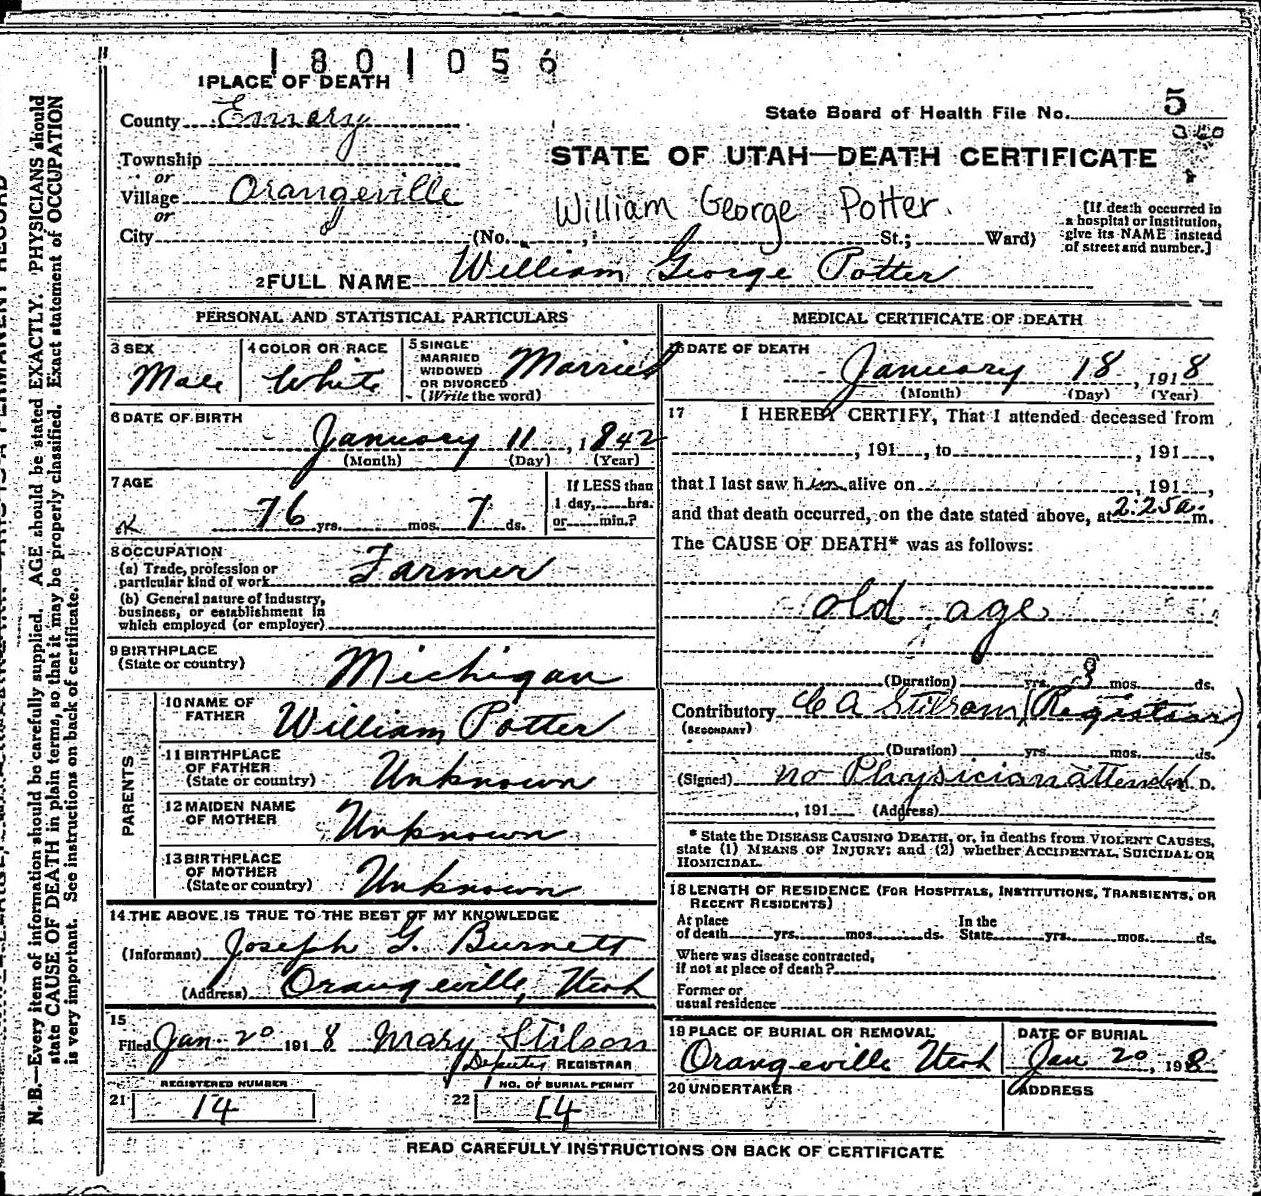 1801056
1 PLACE OF DEATH
County Emery
State Board of Health File No. 5
Township
or
Village Orangeville
or
City
STATE OF UTAH—DEATH CERTIFICATE
William George Potter.
(No. , St.; Ward)
[If death occurred in
a hospital or institution,
give its NAME instead
of street and number.]
2 FULL NAME William George Potter
PERSONAL AND STATISTICAL PARTICULARS
3 SEX
Male
4 COLOR OR RACE
White
5 SINGLE
MARRIED
WIDOWED
OR DIVORCED
(Write the word)
Married
6 DATE OF BIRTH
January 11, 1842
(Month) (Day) (Year)
7 AGE
76 yrs. mos. 7 ds.
If LESS than
1 day, hrs.
or min.?
8 OCCUPATION
(a) Trade, profession or
particular kind of work Farmer
(b) General nature of industry,
business, or establishment in
which employed (or employer)
9 BIRTHPLACE
(State or country) Michigan
PARENTS
10 NAME OF
FATHER William Potter
11 BIRTHPLACE
OF FATHER
(State or country) Unknown
12 MAIDEN NAME
OF MOTHER Unknown
13 BIRTHPLACE
OF MOTHER
(State or country) Unknown
14 THE ABOVE IS TRUE TO THE BEST OF MY KNOWLEDGE
(Informant) Joseph G. Burnett
(Address) Orangeville, Utah
15
Filed Jan 20 1918 Mary Stilson
Deputy REGISTRAR
REGISTERED NUMBER
21 14
NO. OF BURIAL PERMIT
22 14
MEDICAL CERTIFICATE OF DEATH
16 DATE OF DEATH
January 18, 1918
(Month) (Day) (Year)
17 I HEREBY CERTIFY, That I attended deceased from
, 191 , to , 191 ,
that I last saw him alive on , 191 ,
and that death occurred, on the date stated above, at 2:25 a. m.
The CAUSE OF DEATH* was as follows:
old age
(Duration) yrs. 3 mos. ds.
Contributory C A Stilson (Registrar)
(SECONDARY)
(Duration) yrs. mos. ds.
(Signed) no Physician attended M. D.
, 191 (Address)
* State the DISEASE CAUSING DEATH, or, in deaths from VIOLENT CAUSES,
state (1) MEANS OF INJURY; and (2) whether ACCIDENTAL, SUICIDAL OR
HOMICIDAL.
18 LENGTH OF RESIDENCE (FOR HOSPITALS, INSTITUTIONS, TRANSIENTS, OR
RECENT RESIDENTS)
At place
of death yrs. mos. ds.
In the
State yrs. mos. ds.
Where was disease contracted,
if not at place of death?
Former or
usual residence
19 PLACE OF BURIAL OR REMOVAL
Orangeville Utah
DATE OF BURIAL
Jan 20, 1918
20 UNDERTAKER
ADDRESS
READ CAREFULLY INSTRUCTIONS ON BACK OF CERTIFICATE
N. B.—Every item of information should be carefully supplied. AGE should be stated EXACTLY. PHYSICIANS should
state CAUSE OF DEATH in plain terms, so that it may be properly classified. Exact statement of OCCUPATION
is very important. See instructions on back of certificate.